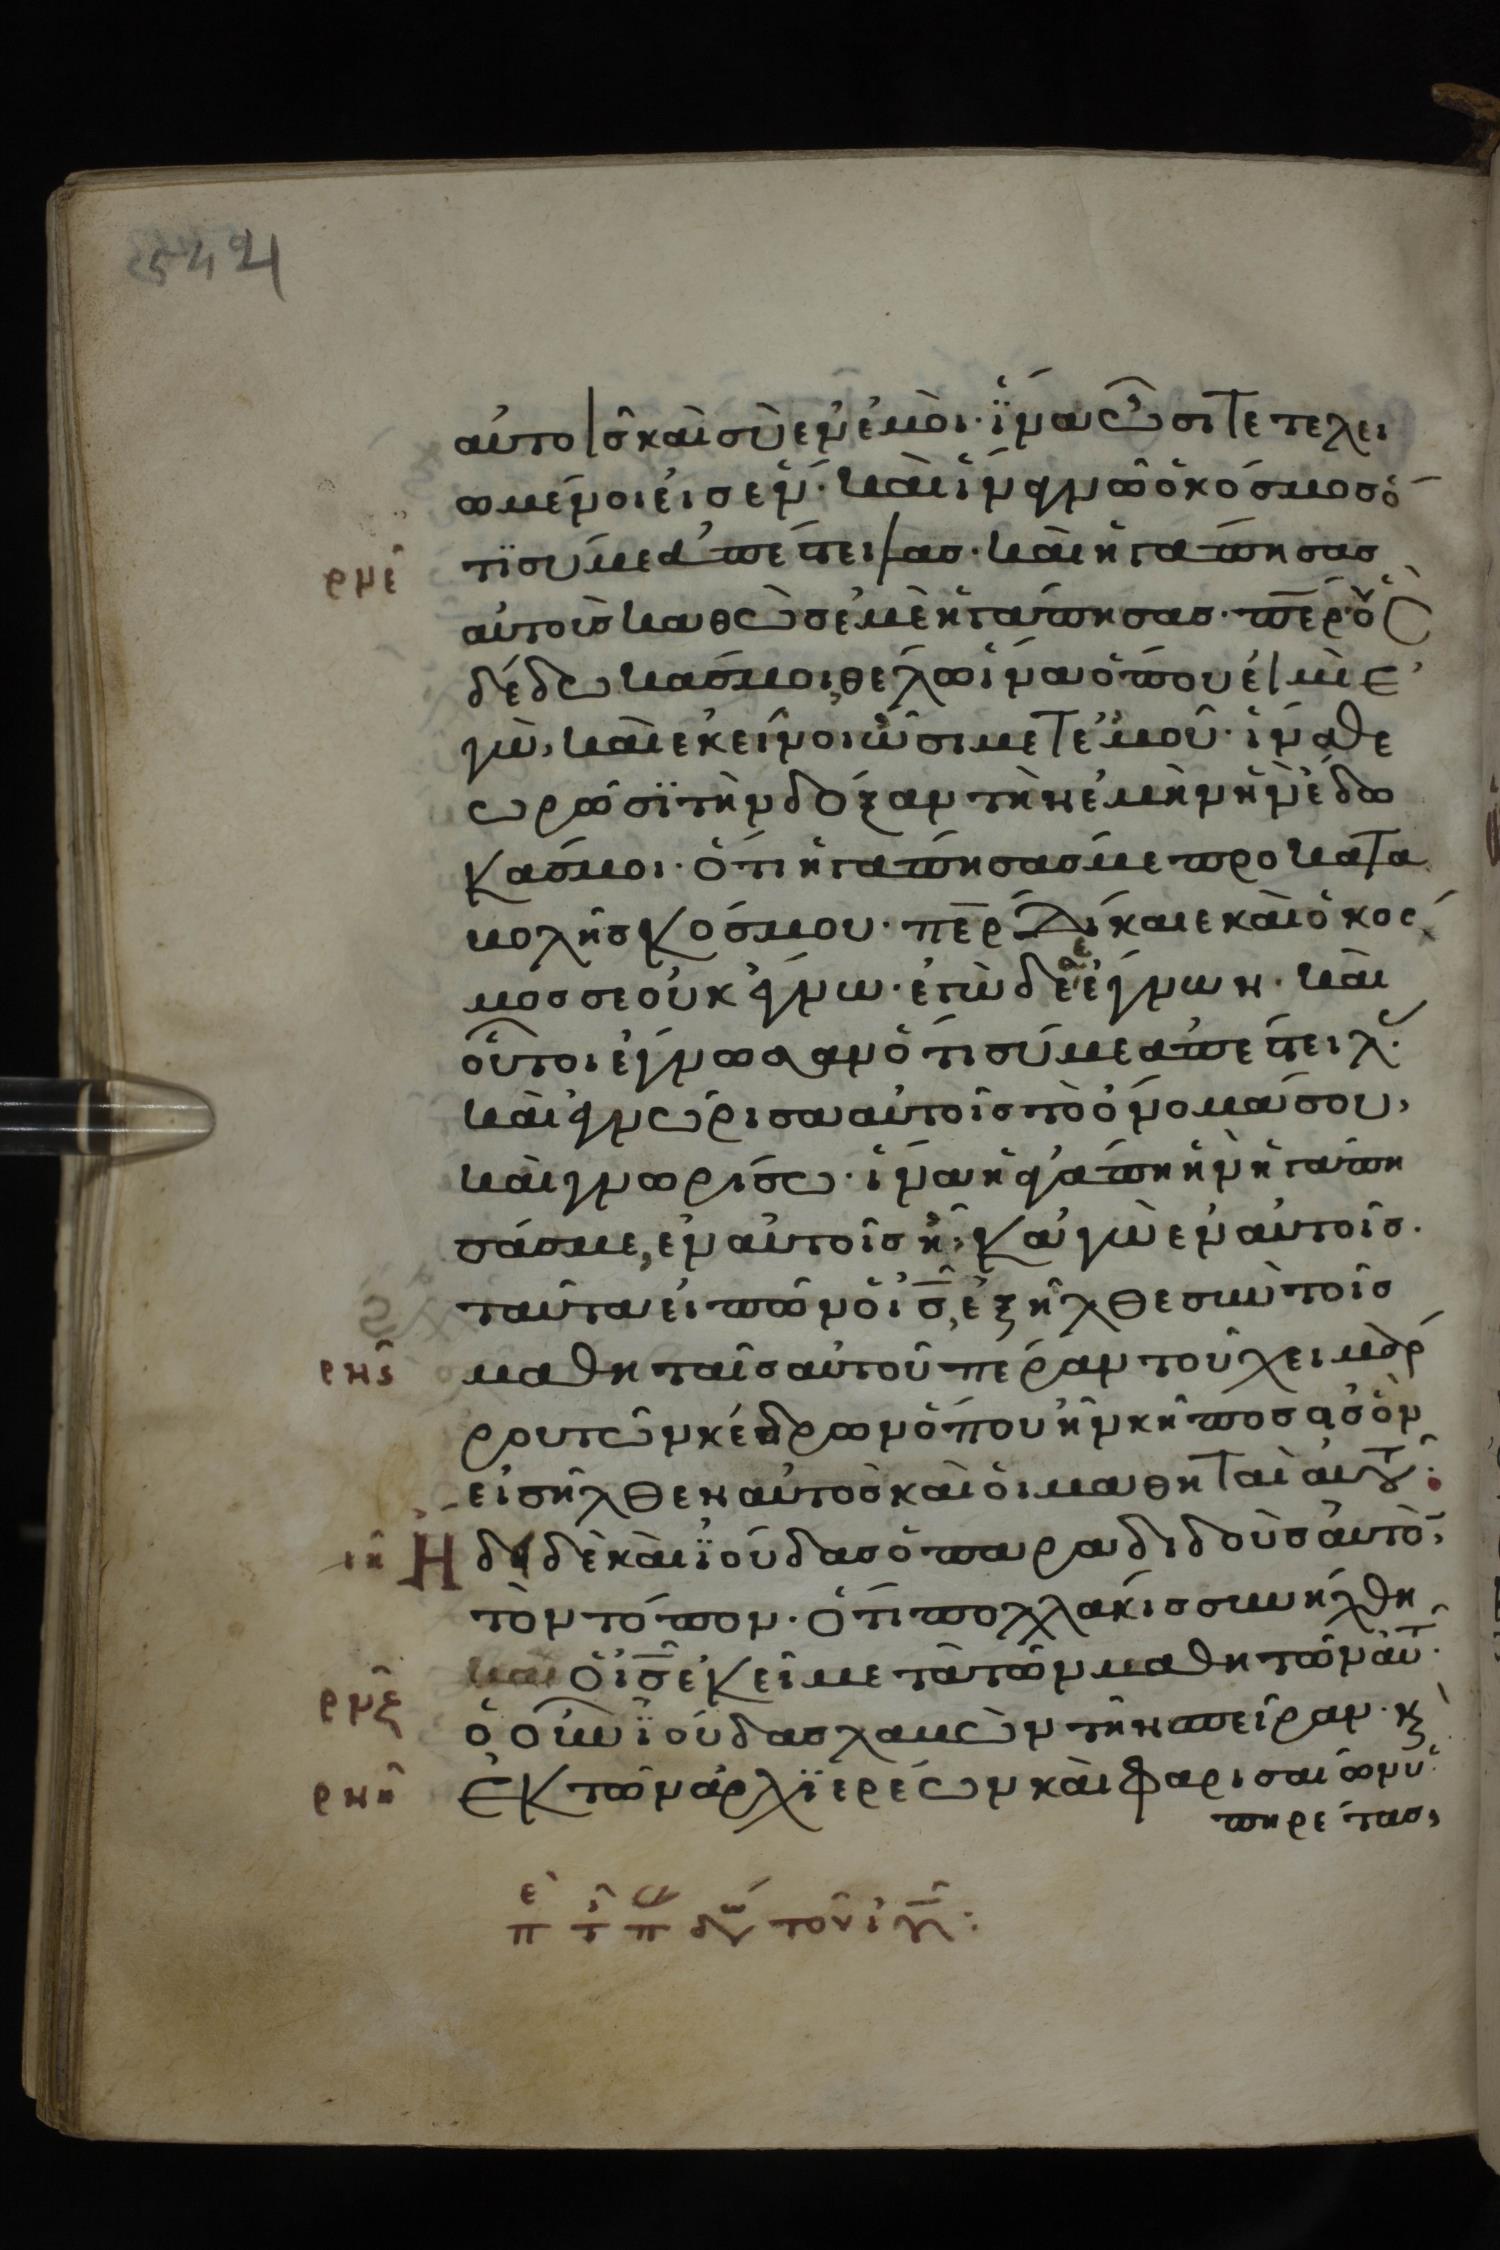 αὐτοῖς καὶ σὺ ἐν ἐμοὶ· ἵνα ὦσι τετελει
ωμένοι εἰς ἕν· καὶ ἵνα γινω ὁ κόσμος ὅ
ρμε τι σύ με ἀπέστειλας· καὶ ἠγάπησας
αὐτοὺς καθὼς ἐμὲ ἠγάπησας· περ οὓς
δέδωκάς μοι, θέλω ἵνα ὅπου εἰμὶ ἐ
γὼ, κἀκεῖνοι ὦσι μετ ἐμοῦ· ἵνα θε
ωρῶσι τὴν δόξαν τὴν ἐμὴν ἣν ἔδω
κάς μοι· ὅτι ἠγάπησάς με προ κατα
βολῆς κόσμου· περ δίκαιε καὶ ὁ κόσ
μος σε οὐκ ἔγνω· ἐγὼ δέ σε ἔγνων· καὶ
οὗτοι ἔγνωσαν ὅτι σύ με ἀπέστειλ
καὶ ἐγνώρισα αὐτοῖς τὸ ὄνομά σου,
καὶ γνωρίσω· ἵνα ἡ ἀγάπη ἣν ἠγάπη
σάς με, ἐν αὐτοῖς ἦ, κἀγὼ ἐν αὐτοῖς.
ταῦτα εἰπὼν ὁ ις, ἐξῆλθε σὺν τοῖς
ρμς μαθηταῖς αὐτοῦ πέραν τοῦ χειμάρ
ρου τῶν κέδρων ὅπου ἦν κῆπος εἰς ὃν
εἰσῆλθεν αὐτὸς καὶ οἱ μαθηταὶ αὐτοῦ:
ιη Ἤδει δὲ καὶ ἰούδας ὁ παραδιδοὺς αὐτὸν,
τὸν τόπον· ὅτι πολλάκις συνήλθη
καὶ ὁ ις ἐκεῖ μετὰ τῶν μαθητῶν αὐτ
ρμζ ὁ οὖν ἰούδας λαβὼν τὴν σπεῖραν· κ
ρμη ἐκ τῶν ἀρχιερέων καὶ φαρισαίων ὑ
πηρέτας,